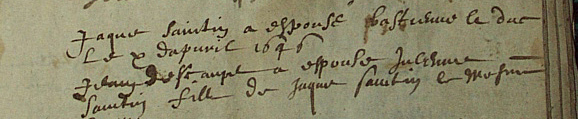 Jaque saintin a espousé bastienne le duc
Le x dapvril 1646
Jean descampt a espousé Julienne
saintin fille de Jaque saintin le mesme